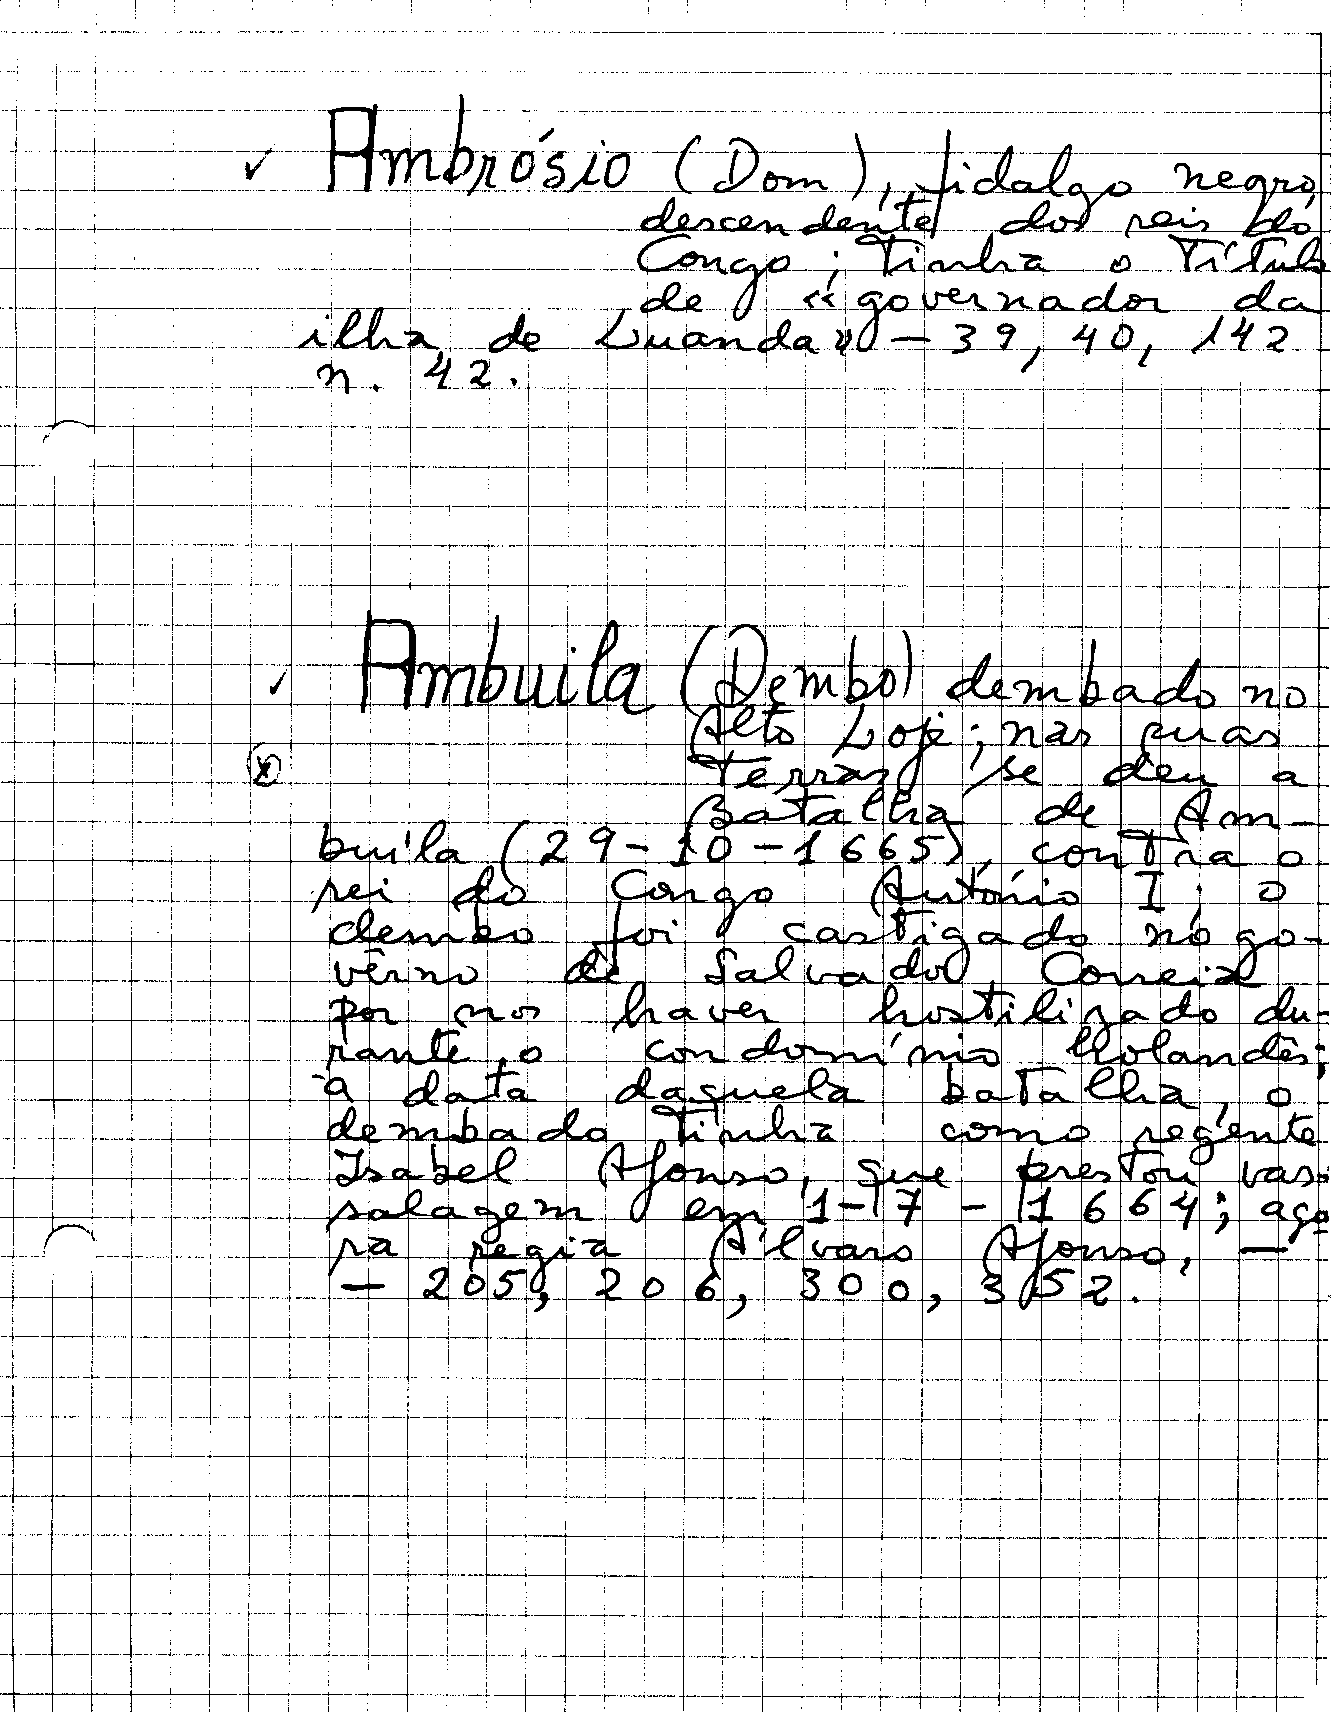 ✓ Ambrósio (Dom), fidalgo negro,
descendente dos reis do
Congo; tinha o título
de «governador da
ilha de Luanda» – 39, 40, 142
n. 42.
✓ Ambuila (Dembo) dembado no
Alto Loje; nas suas
terras se deu a
Batalha de Am-
buíla (29-10-1665), contra o
rei do Congo António I; o
dembo foi castigado no go-
vêrno de Salvador Correia
por nos haver hostilizado du-
rante o condomínio holandês;
à data daquela batalha, o
dembado tinha como regente
Isabel Afonso, que prestou vas-
salagem em 1-7-1664; ago
ra regia Álvaro Afonso, —
– 205, 206, 300, 352.